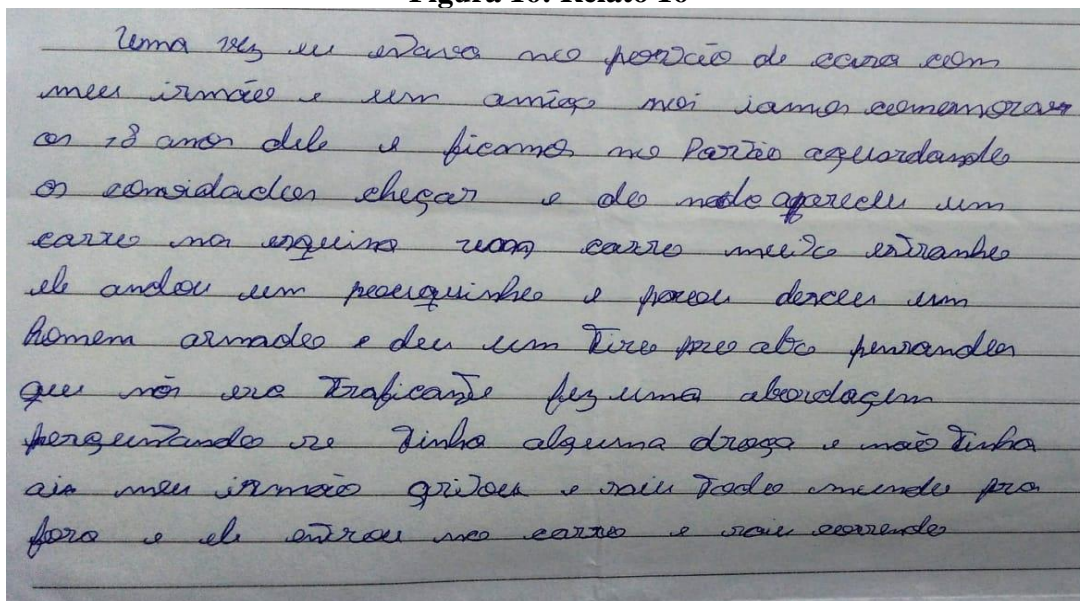 Figura 10: Relato 10
Uma vez eu estava no portão de casa com
meu irmão e um amigo nois iamos comemorar
os 18 anos dele e ficamos no Portão aguardando
os convidados chegar e do nada apareceu um
carro na esquina um carro muito estranho
ele andou um pouquinho e parou desceu um
homem armado e deu um Tiro pro alto pensando
que nós era Traficante fez uma abordagem
perguntando se Tinha alguma droga e não Tinha
ai meu irmão gritou e saiu Todo mundo pra
fora e ele entrou no carro e saiu correndo